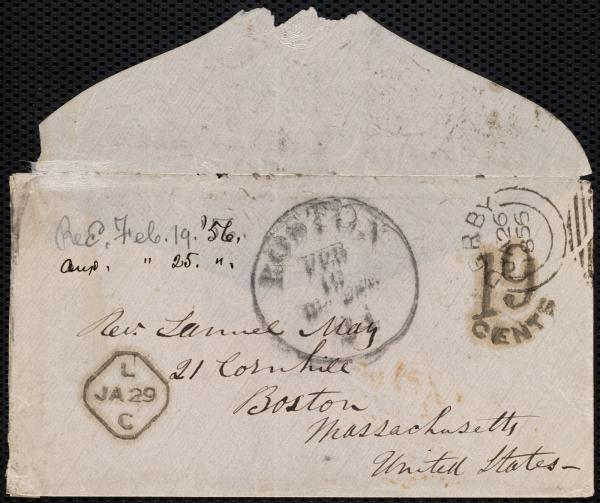 Rec. Feb. 19. '56.
Ans. " 25. ".
BOSTON
FEB
18
ERBY
26
19
CENTS
Rev. Samuel May
21 Cornhill
Boston
Massachusetts
United States—
L
JA 29
C